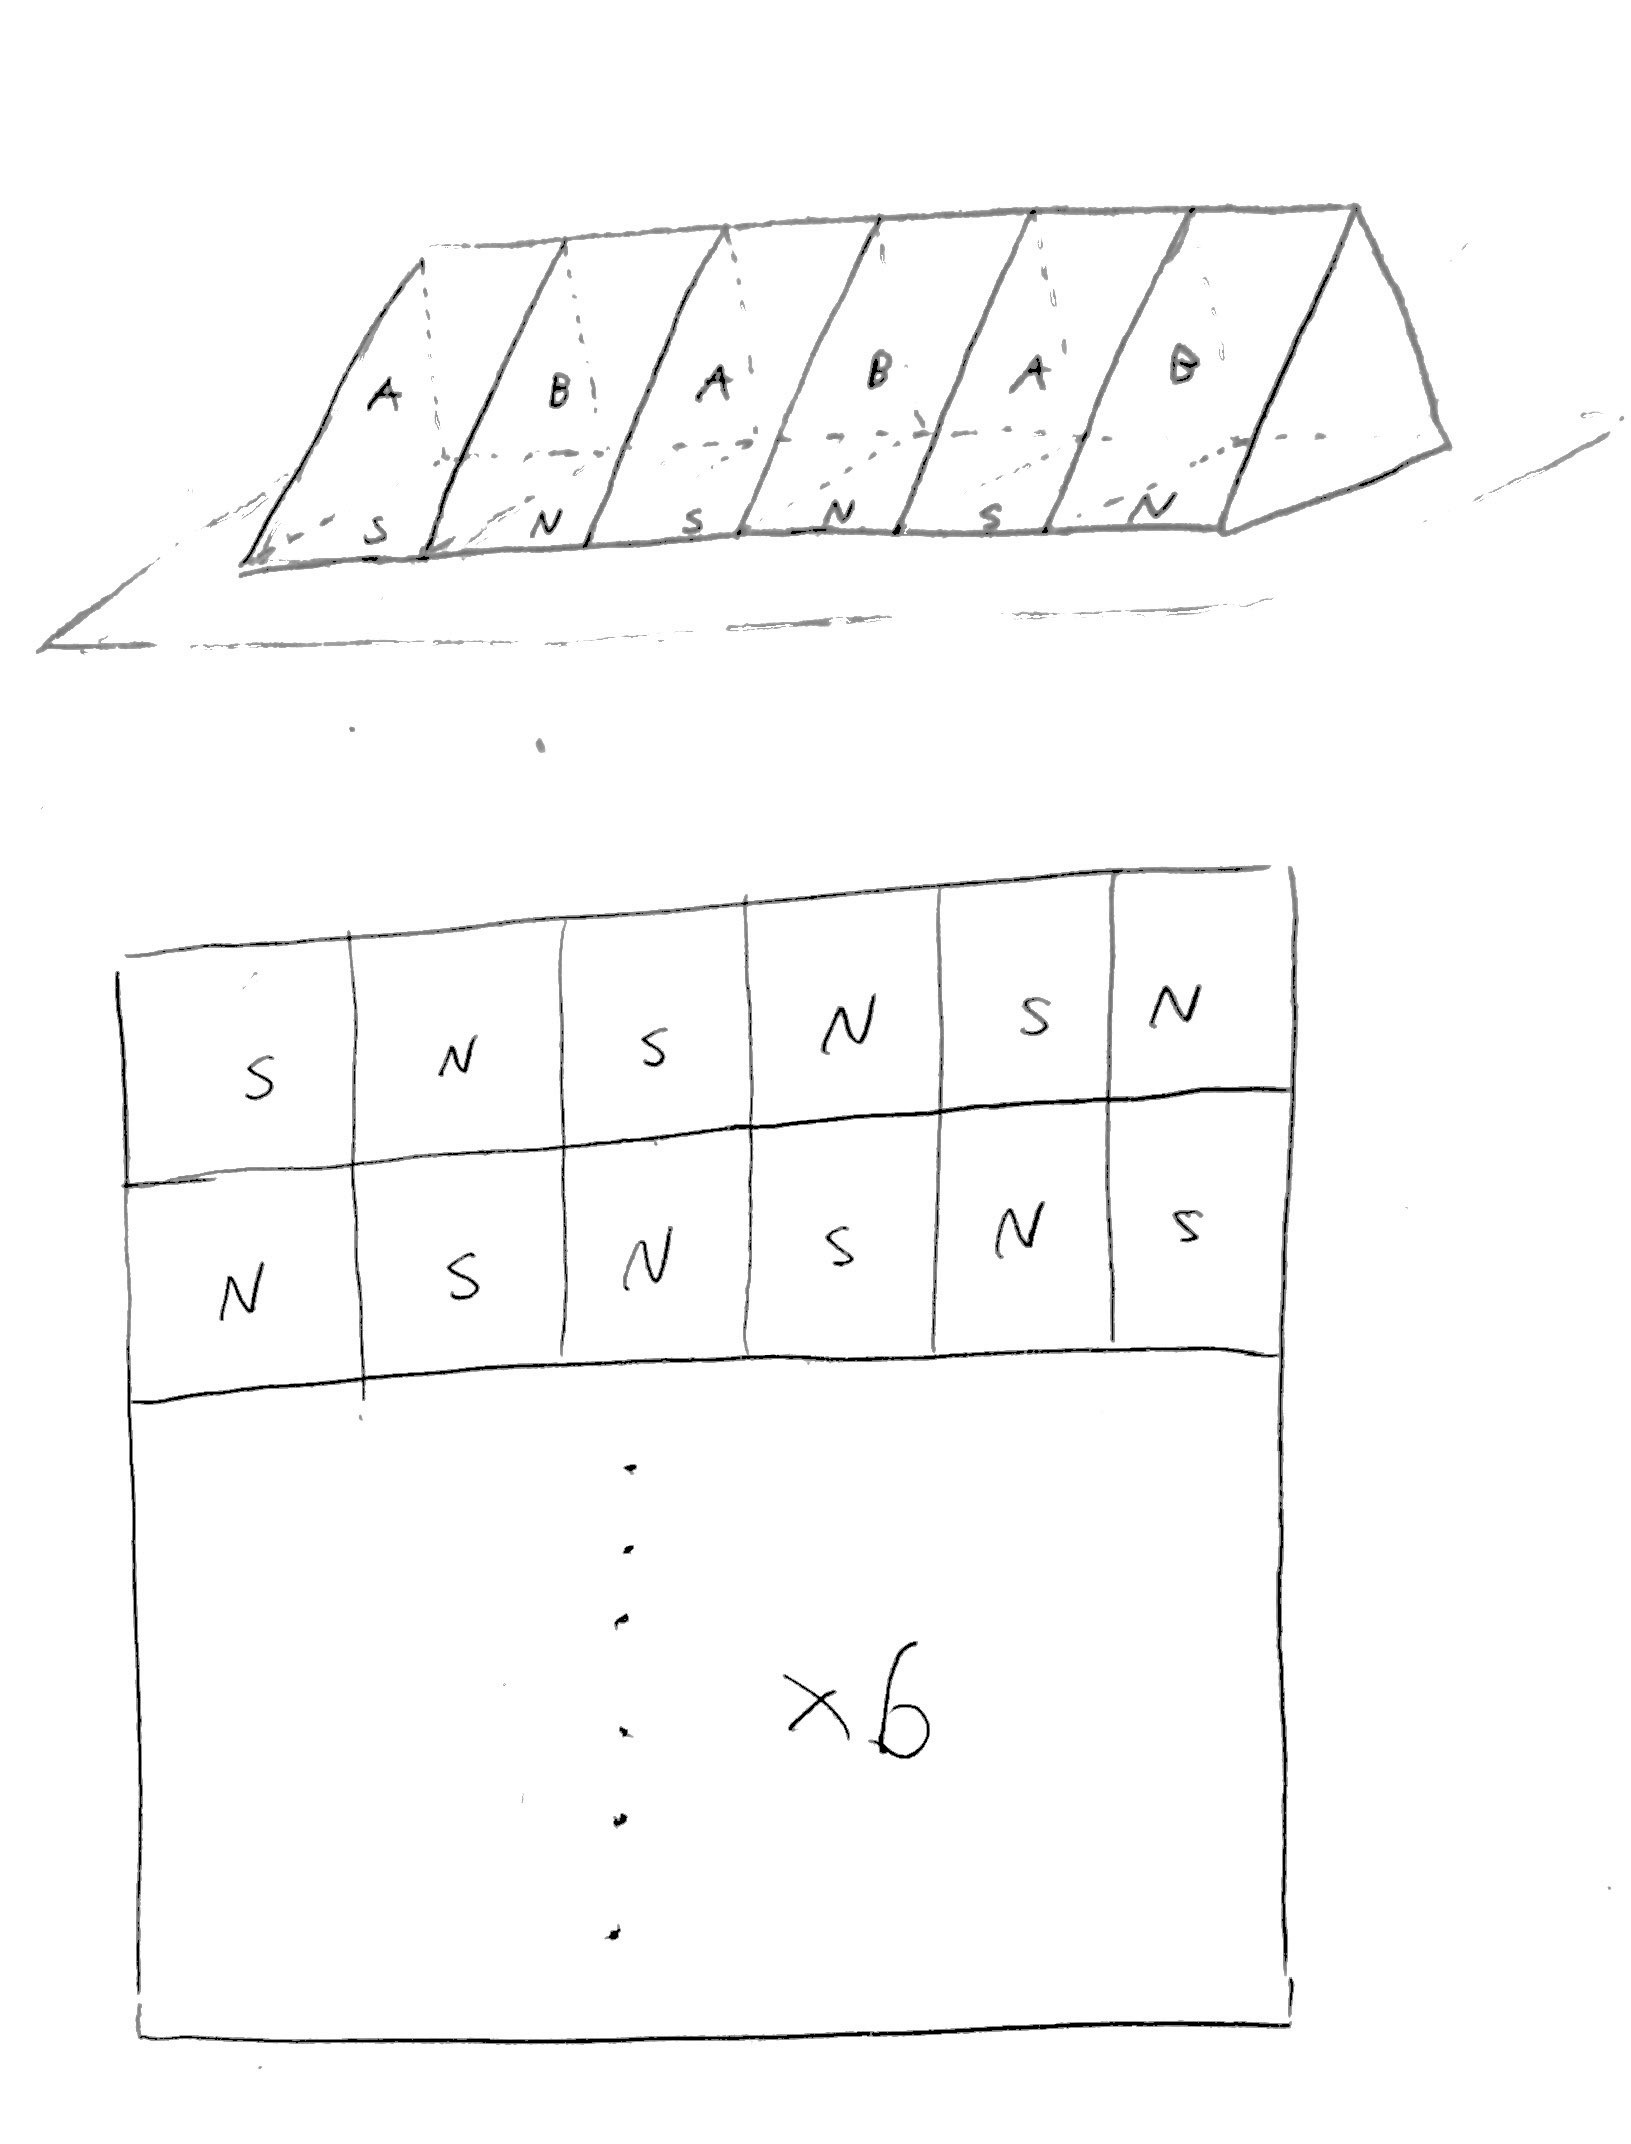 A B A B A B
S N S N S N
S N S N S N
N S N S N S
×6